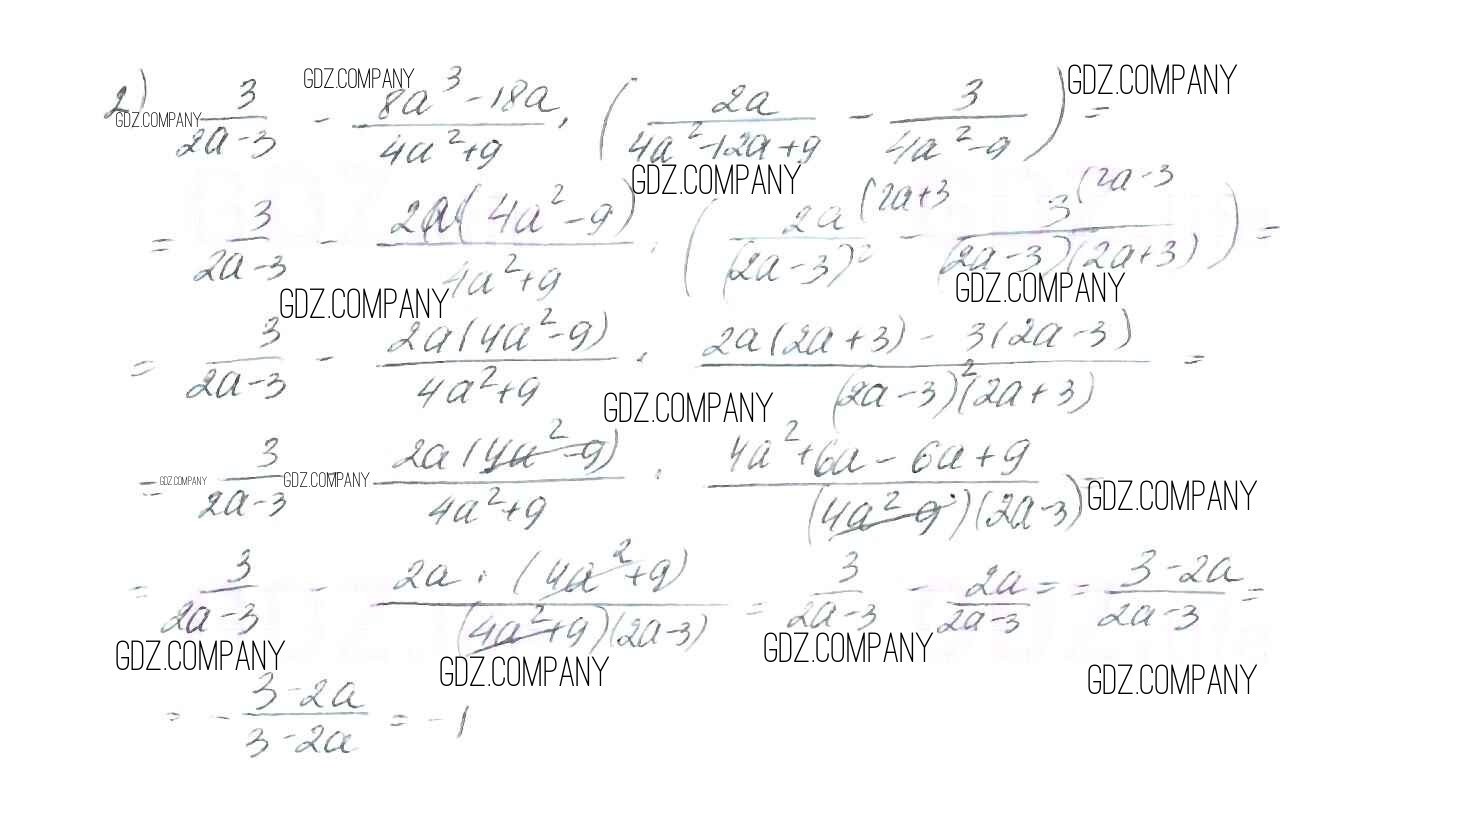 2) 3/(2a-3) - (8a³-18a)/(4a²+9) · (2a/(4a²-12a+9) - 3/(4a²-9)) =
= 3/(2a-3) - 2a(4a²-9)/(4a²+9) · (2a(2a+3/(2a-3)² - 3(2a-3/(2a-3)(2a+3)) =
= 3/(2a-3) - 2a(4a²-9)/(4a²+9) · (2a(2a+3) - 3(2a-3))/((2a-3)²(2a+3)) =
= 3/(2a-3) - 2a(4a²-9)/(4a²+9) · (4a²+6a-6a+9)/((4a²-9)(2a-3)) =
= 3/(2a-3) - 2a·(4a²+9)/((4a²+9)(2a-3)) = 3/(2a-3) - 2a/(2a-3) = = (3-2a)/(2a-3) =
= - (3-2a)/(3-2a) = -1
GDZ.COMPANY
GDZ.COMPANY
GDZ.COMPANY
GDZ.COMPANY
GDZ.COMPANY
GDZ.COMPANY
GDZ.COMPANY
GDZ.COMPANY
GDZ.COMPANY
GDZ.COMPANY
GDZ.COMPANY
GDZ.COMPANY
GDZ.COMPANY
GDZ.COMPANY